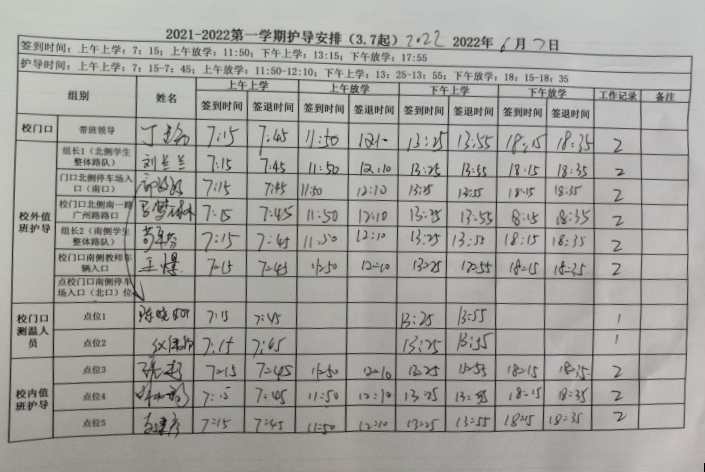 2021-2022第一学期护导安排（3.7起）2022 2022年 6月 7日
签到时间：上午上学：7：15；上午放学：11:50；下午上学：13:15；下午放学：17:55
护导时间：上午上学：7：15-7：45；上午放学：11:50-12:10；下午上学：13：25-13：55；下午放学：18：15-18：35
组别 姓名 上午上学 上午放学 下午上学 下午放学 工作记录 备注
签到时间 签退时间 签到时间 签退时间 签到时间 签退时间 签到时间 签退时间
校门口 带班领导 7:15 7:45 11:50 13:25 13:55 18:15 18:35 2
校外值班护导
组长1（北侧学生整体路队） 刘兰兰 7:15 7:45 11:50 12:10 13:25 13:55 18:15 18:35 2
门口北侧停车场入口（南口） 7:15 7:45 11:50 12:10 13:25 13:55 18:15 18:35 2
校门口北侧南一路广州路路口 7:15 7:45 11:50 12:10 13:25 13:55 18:15 18:35 2
组长2（南侧学生整体路队） 7:15 7:45 11:50 12:10 13:25 13:55 18:15 18:35 2
校门口南侧教师车辆入口 7:15 7:45 11:50 12:10 13:25 13:55 18:15 18:35 2
点校门口南侧停车场入口（北口）位
校门口测温人员
点位1 7:15 7:45 13:25 13:55 1
点位2 7:15 7:45 13:25 13:55 1
校内值班护导
点位3 7:15 7:45 11:50 12:10 13:25 13:55 18:15 18:35 2
点位4 7:15 7:45 11:50 12:10 13:25 13:55 18:15 18:35 2
点位5 7:15 7:45 11:50 12:10 13:25 13:55 18:15 18:35 2